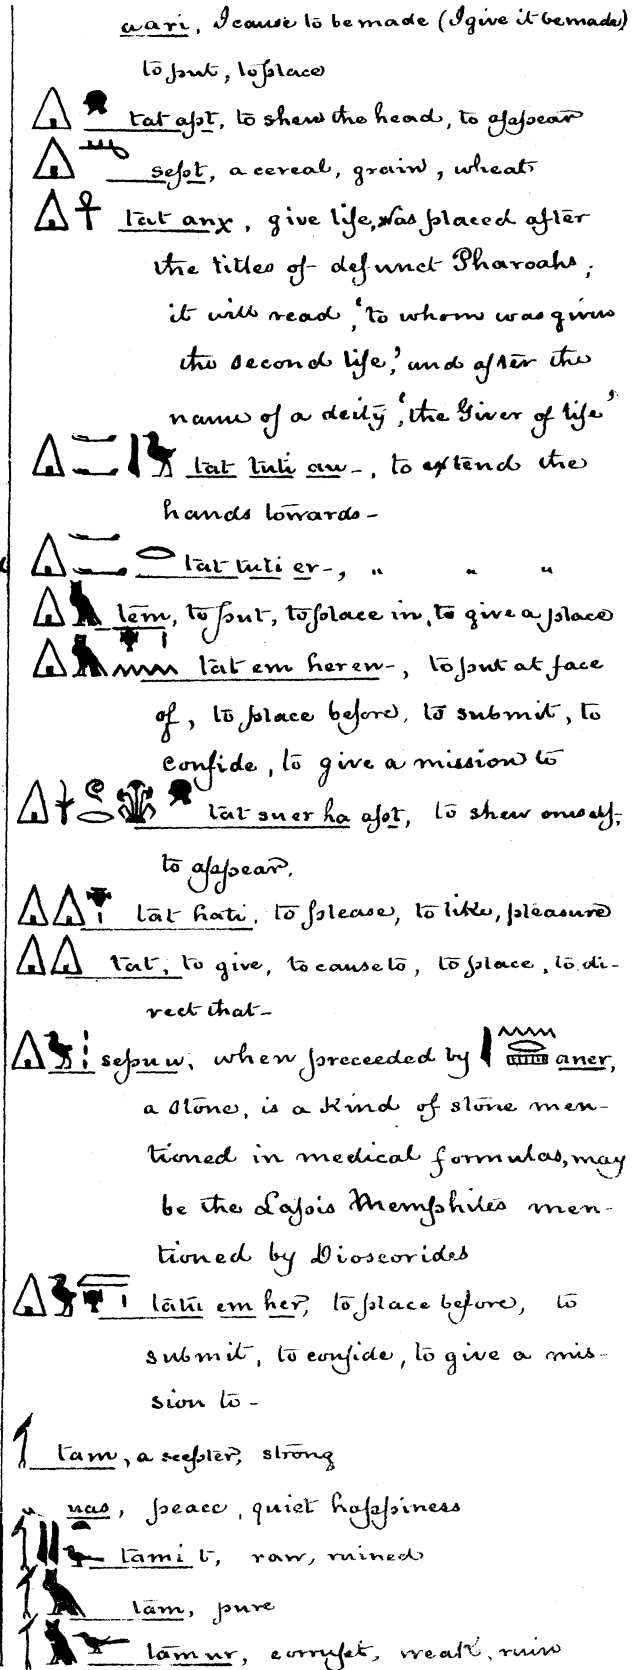 aari, I cause to be made (I give it be made)
to put, to place
tat apt, to shew the head, to appear
sept, a cereal, grain, wheat
tat anχ, give life, was placed after
the titles of defunct Pharoahs;
it will read, 'to whom was given
the second life,' and after the
name of a deity, 'the Giver of life'
tat tuti au-, to extend the
hands towards-
tat tuti er-, " " "
tem, to put, to place in, to give a place
tat em her en-, to put at face
of, to place before, to submit, to
confide, to give a mission to
tat su er ha apt, to shew oneself,
to appear.
tat hati, to please, to like, pleasure
tat, to give, to cause to, to place, to di-
rect that-
sepuu, when preceeded by aner,
a stone, is a kind of stone men-
tioned in medical formulas, may
be the Lapis Memphites men-
tioned by Dioscorides
tatu em her, to place before, to
submit, to confide, to give a mis-
sion to-
tam, a scepter, strong
uas, peace, quiet happiness
tamit, raw, ruined
tam, pure
tam ur, corrupt, weak, ruin